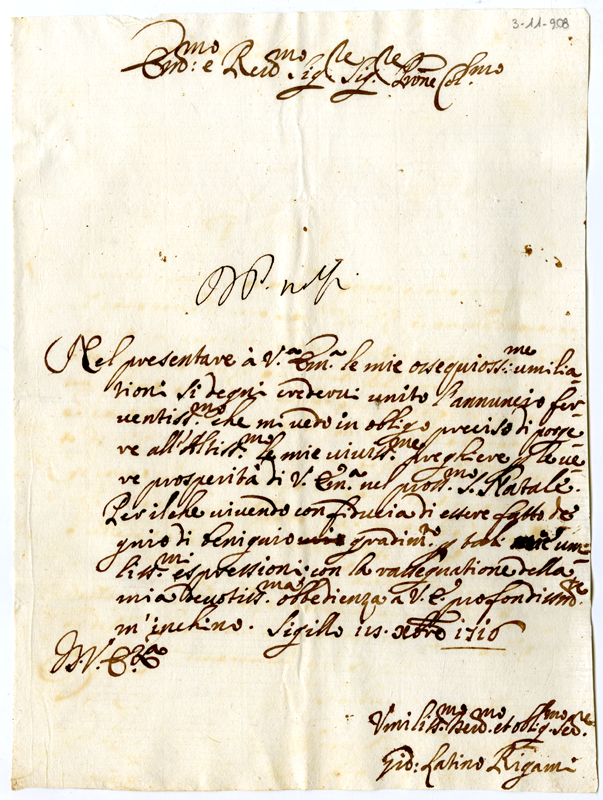 3-11-908
Em:mo e Reu:mo Sig:re Sig:re Prone Col:mo
Nel presentare à V.ra Em.a le mie ossequioss:me umilia-
tioni si degni credervi unito l'annuncio fer-
ventiss:mo che mi vedo in obligo preciso di porge-
re all'Altiss:mo le mie viviss:me preghiere le ve-
re prosperità di V. Em.a nel pross:mo S. Natale.
Per il che vivendo con fiducia di essere fatto de-
gno di benigno gradim:to tali umi-
liss:mi espressioni; con la rassegnatione della
mia devotiss:ma obbedienza a V. E. profondam:te
m'inchino. Sigillo 1710
D. V. Em.a
Vmiliss:mo Deuo:mo et obblig:mo Ser:re
Gio: Latino Rigami